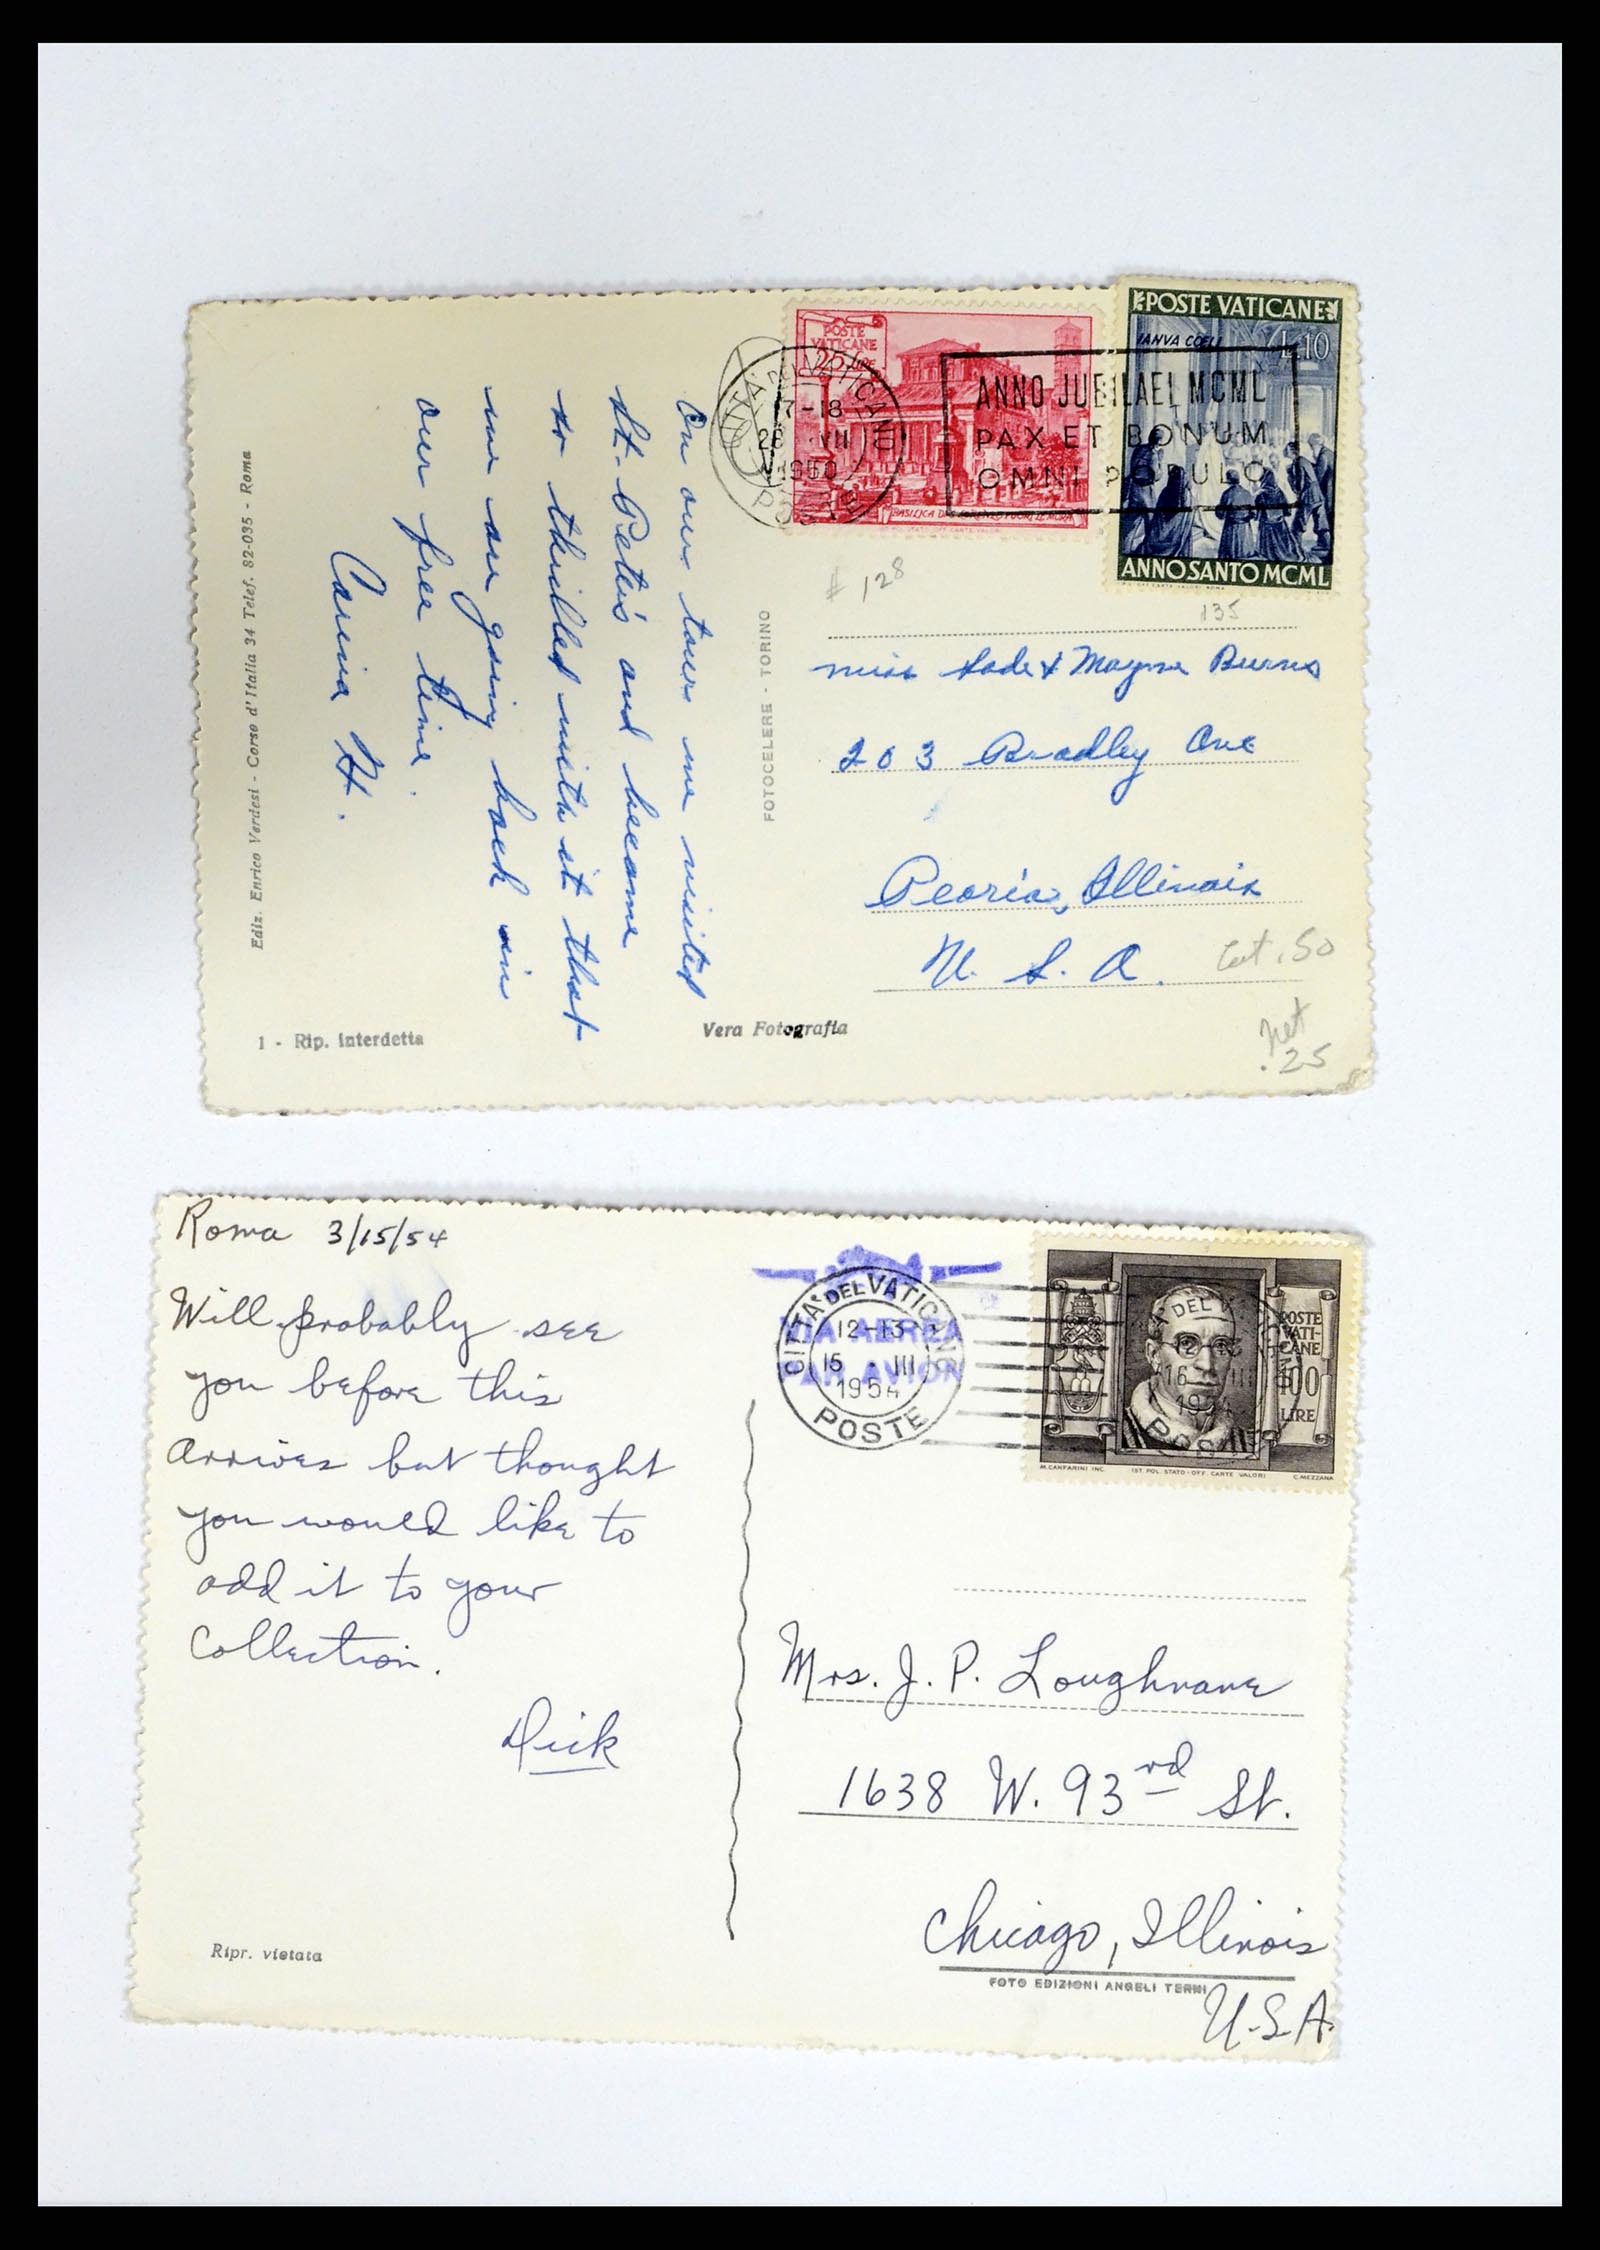 POSTE
VATICANE
25 LIRE
BASILICA DI S. LORENZO FUORI LE MURA
POSTE VATICANE
IANVA COELI
L.10
ANNO SANTO MCML
CITTÀ DEL VATICANO
17-18
28 VII
1950
POSTE
ANNO JUBILAEI MCML
PAX ET BONUM
OMNI POPULO
# 128
135
On our tour we visited
St. Peter's and became
so thrilled with it that
we are going back in
our free time.
Carina H.
Ediz. Enrico Verdesi - Corso d'Italia 34 Telef. 82-035 - Roma
FOTOCELERE - TORINO
1 - Rip. interdetta
Vera Fotografia
Miss Sade & Mayme Burns
203 Bradley Ave
Peoria, Illinois
U. S. A.
Cat .50
Net
.25
Roma 3/15/54
Will probably see
you before this
arrives but thought
you would like to
add it to your
collection.
Dick
VIA AEREA
PAR AVION
CITTA' DEL VATICANO
12-13
15 III
1954
POSTE
POSTE
VATI-
CANE
100
LIRE
M. CANFARINI INC. IST. POL. STATO - OFF. CARTE VALORI C. MEZZANA
Mrs. J. P. Loughnane
1638 W. 93rd St.
Chicago, Illinois
U.S.A.
Ripr. vietata
FOTO EDIZIONI ANGELI TERNI